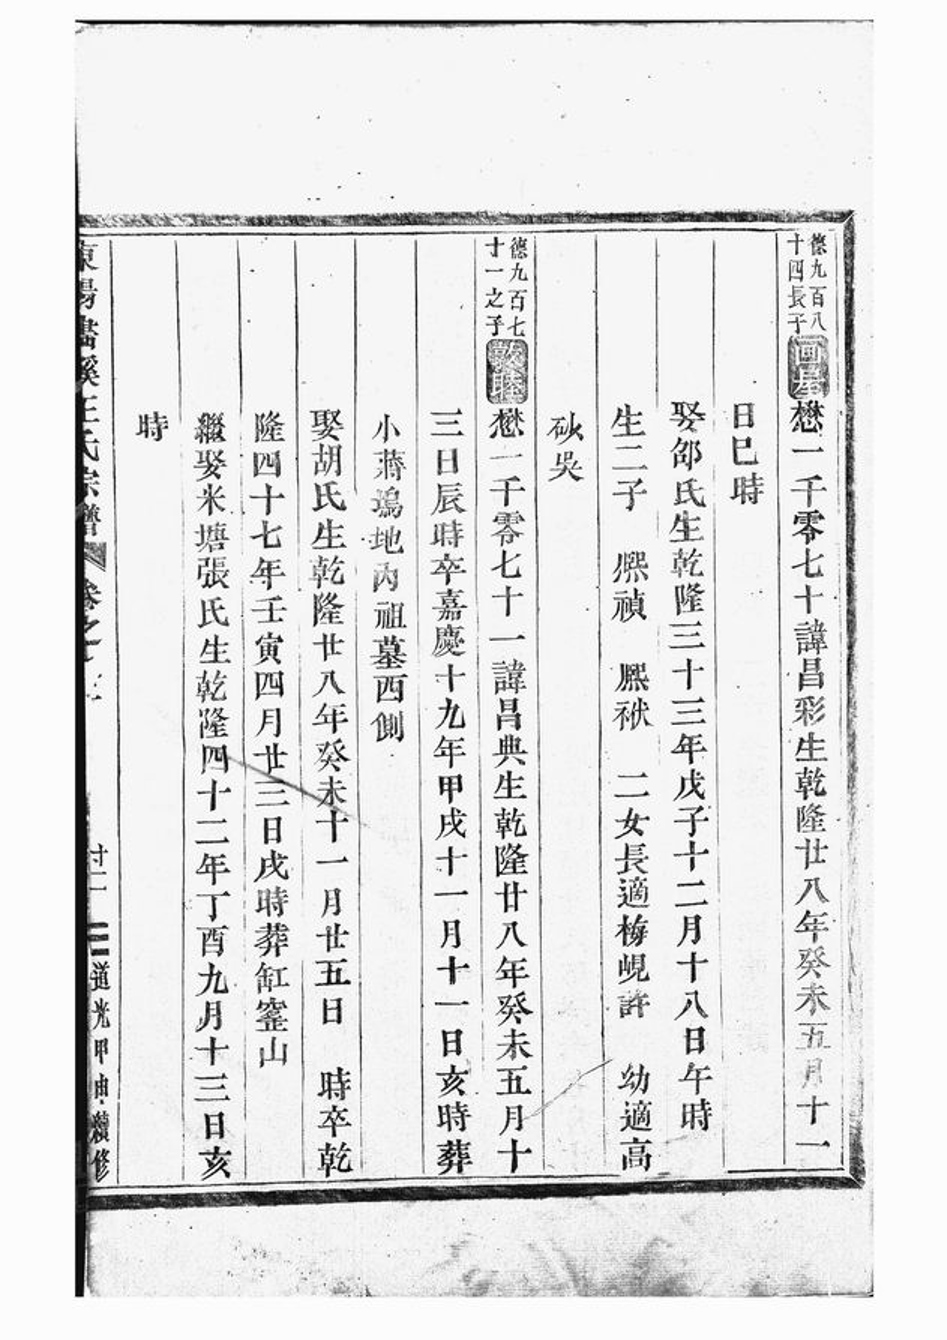 德九百八
十四長子
画星
懋一千零七十諱昌彩生乾隆廿八年癸未五月十一
日巳時
娶邵氏生乾隆三十三年戊子十二月十八日午時
生二子 熈禎 熈袱 二女長適梅峴許 幼適高
砂吳
德九百七
十一之子
敦睦
懋一千零七十一諱昌典生乾隆廿八年癸未五月十
三日辰時卒嘉慶十九年甲戌十一月十一日亥時葬
小蔣塢地內祖墓西側
娶胡氏生乾隆廿八年癸未十一月廿五日 時卒乾
隆四十七年壬寅四月廿三日戌時葬缸窰山
繼娶米塘張氏生乾隆四十二年丁酉九月十三日亥
時
東陽畫溪王氏宗譜 卷之
廿二
道光甲申續修